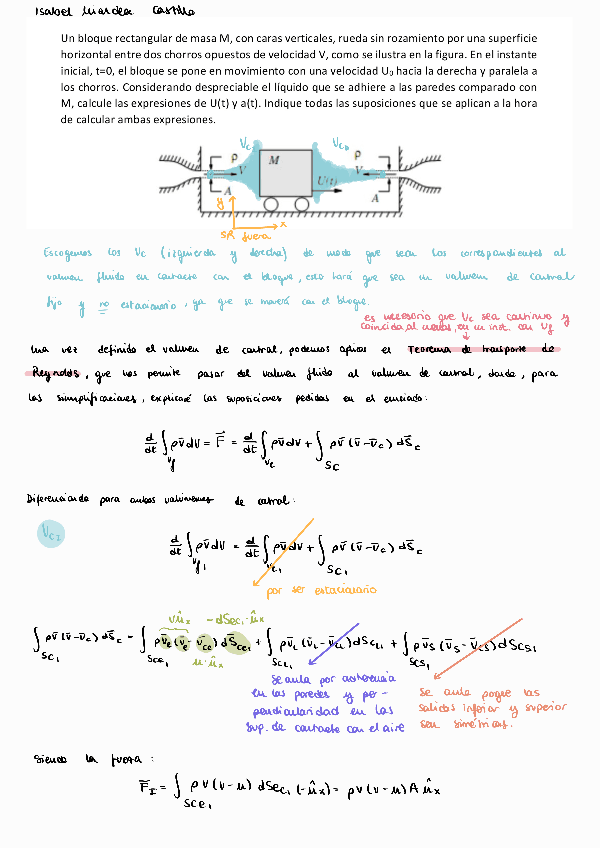 Isabel Guardea Castillo
Un bloque rectangular de masa M, con caras verticales, rueda sin rozamiento por una superficie
horizontal entre dos chorros opuestos de velocidad V, como se ilustra en la figura. En el instante
inicial, t=0, el bloque se pone en movimiento con una velocidad U₀ hacia la derecha y paralela a
los chorros. Considerando despreciable el líquido que se adhiere a las paredes comparado con
M, calcule las expresiones de U(t) y a(t). Indique todas las suposiciones que se aplican a la hora
de calcular ambas expresiones.
Vc
ρ
V
A
M
U(t)
Vc
ρ
V
A
y
x
SR fuera
Escogemos los Vc (izquierda y derecha) de modo que sean los correspondientes al
volumen fluido en contacto con el bloque, esto hará que sea un volumen de control
fijo y no estacionario, ya que se moverá con el bloque.
es necesario que Vc sea continuo y
coincida, al menos, en un inst. con Vf
Una vez definido el volumen de control, podemos aplicar el Teorema de transporte de
Reynolds, que nos permite pasar del volumen fluido al volumen de control, donde, para
las simplificaciones, explicaré las suposiciones pedidas en el enunciado:
d/dt ∫Vf ρv̄dV = F̄ = d/dt ∫Vc ρv̄dV + ∫Sc ρv̄ (v̄-v̄c) dS̄c
Diferenciando para ambos volúmenes de control:
Vc1
d/dt ∫Vf1 ρv̄dV = d/dt ∫Vc1 ρv̄dV + ∫Sc1 ρv̄ (v̄-v̄c) dS̄c
por ser estacionario
vûx -dSec1·ûx
∫Sc1 ρv̄ (v̄-v̄c) dS̄c = ∫Sce1 ρv̄e (v̄e - v̄ce) dS̄ce1 + ∫ ρv̄L (v̄L - v̄cL) dScL1 + ∫Scs1 ρv̄s (v̄s - v̄cs) dScs1
u·ûx
Se anula por adherencia
en las paredes y per-
pendicularidad en las
sup. de contacto con el aire
Se anula porque las
salidas inferior y superior
son simétricas.
Siendo la fuerza:
F̄I = ∫Sce1 ρv(v-u) dSec1 (-ûx) = ρv(v-u) A ûx